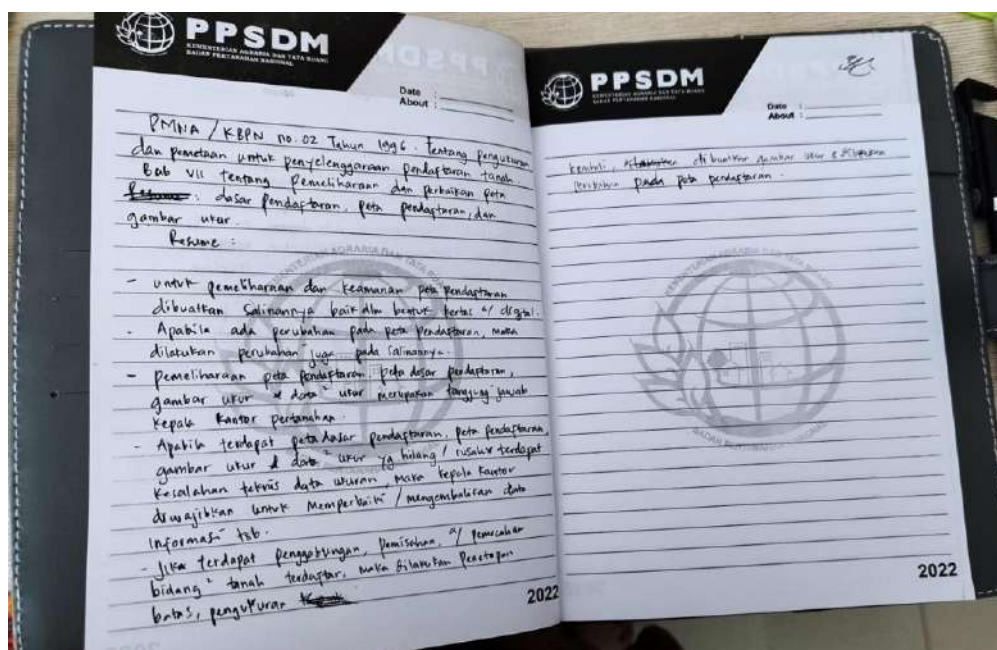 PPSDM
KEMENTERIAN AGRARIA DAN TATA RUANG
BADAN PERTANAHAN NASIONAL
Date :
About :
PMNA / KBPN no. 02 Tahun 1996. Tentang Pengukuran
dan pemetaan untuk penyelenggaraan pendaftaran tanah.
Bab VII tentang Pemeliharaan dan perbaikan peta
: dasar pendaftaran, peta pendaftaran, dan
gambar ukur.
Resume :
- untuk pemeliharaan dan keamanan peta pendaftaran
dibuatkan salinannya baik dlm bentuk kertas a/ digital.
- Apabila ada perubahan pada peta pendaftaran, maka
dilakukan perubahan juga pada salinannya.
- Pemeliharaan peta pendaftaran, peta dasar pendaftaran,
gambar ukur & data² ukur merupakan tanggung jawab
Kepala Kantor pertanahan.
- Apabila terdapat peta dasar pendaftaran, peta pendaftaran,
gambar ukur & data² ukur yg hilang / rusak terdapat
kesalahan teknis data ukuran, maka kepala kantor
diwajibkan untuk memperbaiki / mengembalikan data
informasi tsb.
- Jika terdapat penggabungan, pemisahan, a/ pemecahan
bidang² tanah terdaftar, maka dilakukan penetapan
batas, pengukuran
2022
PPSDM
KEMENTERIAN AGRARIA DAN TATA RUANG
BADAN PERTANAHAN NASIONAL
Date :
About :
kembali, dibuatkan gambar ukur &
perubahan pada peta pendaftaran.
KEMENTERIAN AGRARIA DAN TATA RUANG
BADAN PERTANAHAN NASIONAL
2022